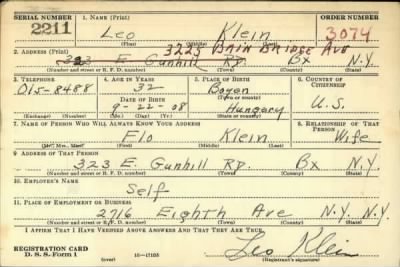 SERIAL NUMBER 1. NAME (Print) ORDER NUMBER
2211 Leo Klein 3074
(First) (Middle) (Last)
3225 BAIN BRIDGE AVE
2. ADDRESS (Print)
323 E. Gunhill RD. Bx N.Y.
(Number and street or R. F. D. number) (Town) (County) (State)
3. TELEPHONE 4. AGE IN YEARS 5. PLACE OF BIRTH 6. COUNTRY OF CITIZENSHIP
OL5-8488 32
DATE OF BIRTH (Town or county)
9-22-08 Hungary U.S.
(Exchange) (Number) (Mo.) (Day) (Yr.) (State or country)
7. NAME OF PERSON WHO WILL ALWAYS KNOW YOUR ADDRESS 8. RELATIONSHIP OF THAT PERSON
Flo Klein Wife
(Mr., Mrs., Miss) (First) (Middle) (Last)
9. ADDRESS OF THAT PERSON
323 E. Gunhill RD. Bx N.Y.
(Number and street or R. F. D. number) (Town) (County) (State)
10. EMPLOYER'S NAME
Self
11. PLACE OF EMPLOYMENT OR BUSINESS
2716 Eighth Ave N.Y. N.Y.
(Number and street or R. F. D. number) (Town) (County) (State)
I AFFIRM THAT I HAVE VERIFIED ABOVE ANSWERS AND THAT THEY ARE TRUE.
REGISTRATION CARD
D. S. S. Form 1 (over) 16-17105 Leo Klein
(Registrant's signature)